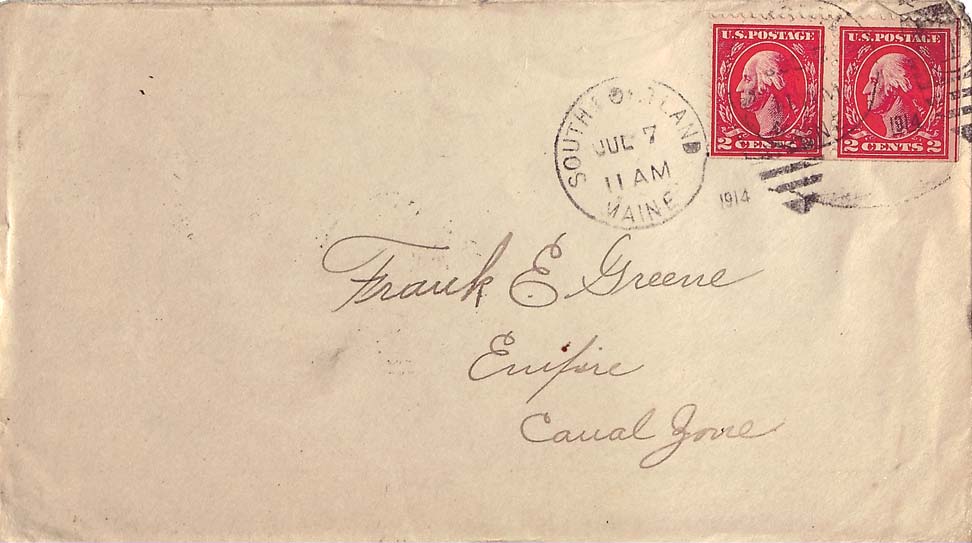 U.S. POSTAGE
2 CENTS 2
U.S. POSTAGE
2 CENTS 2
1914
SOUTH PORTLAND
JUL 7
11 AM
MAINE
1914
Frank E. Greene
Empire
Canal Zone